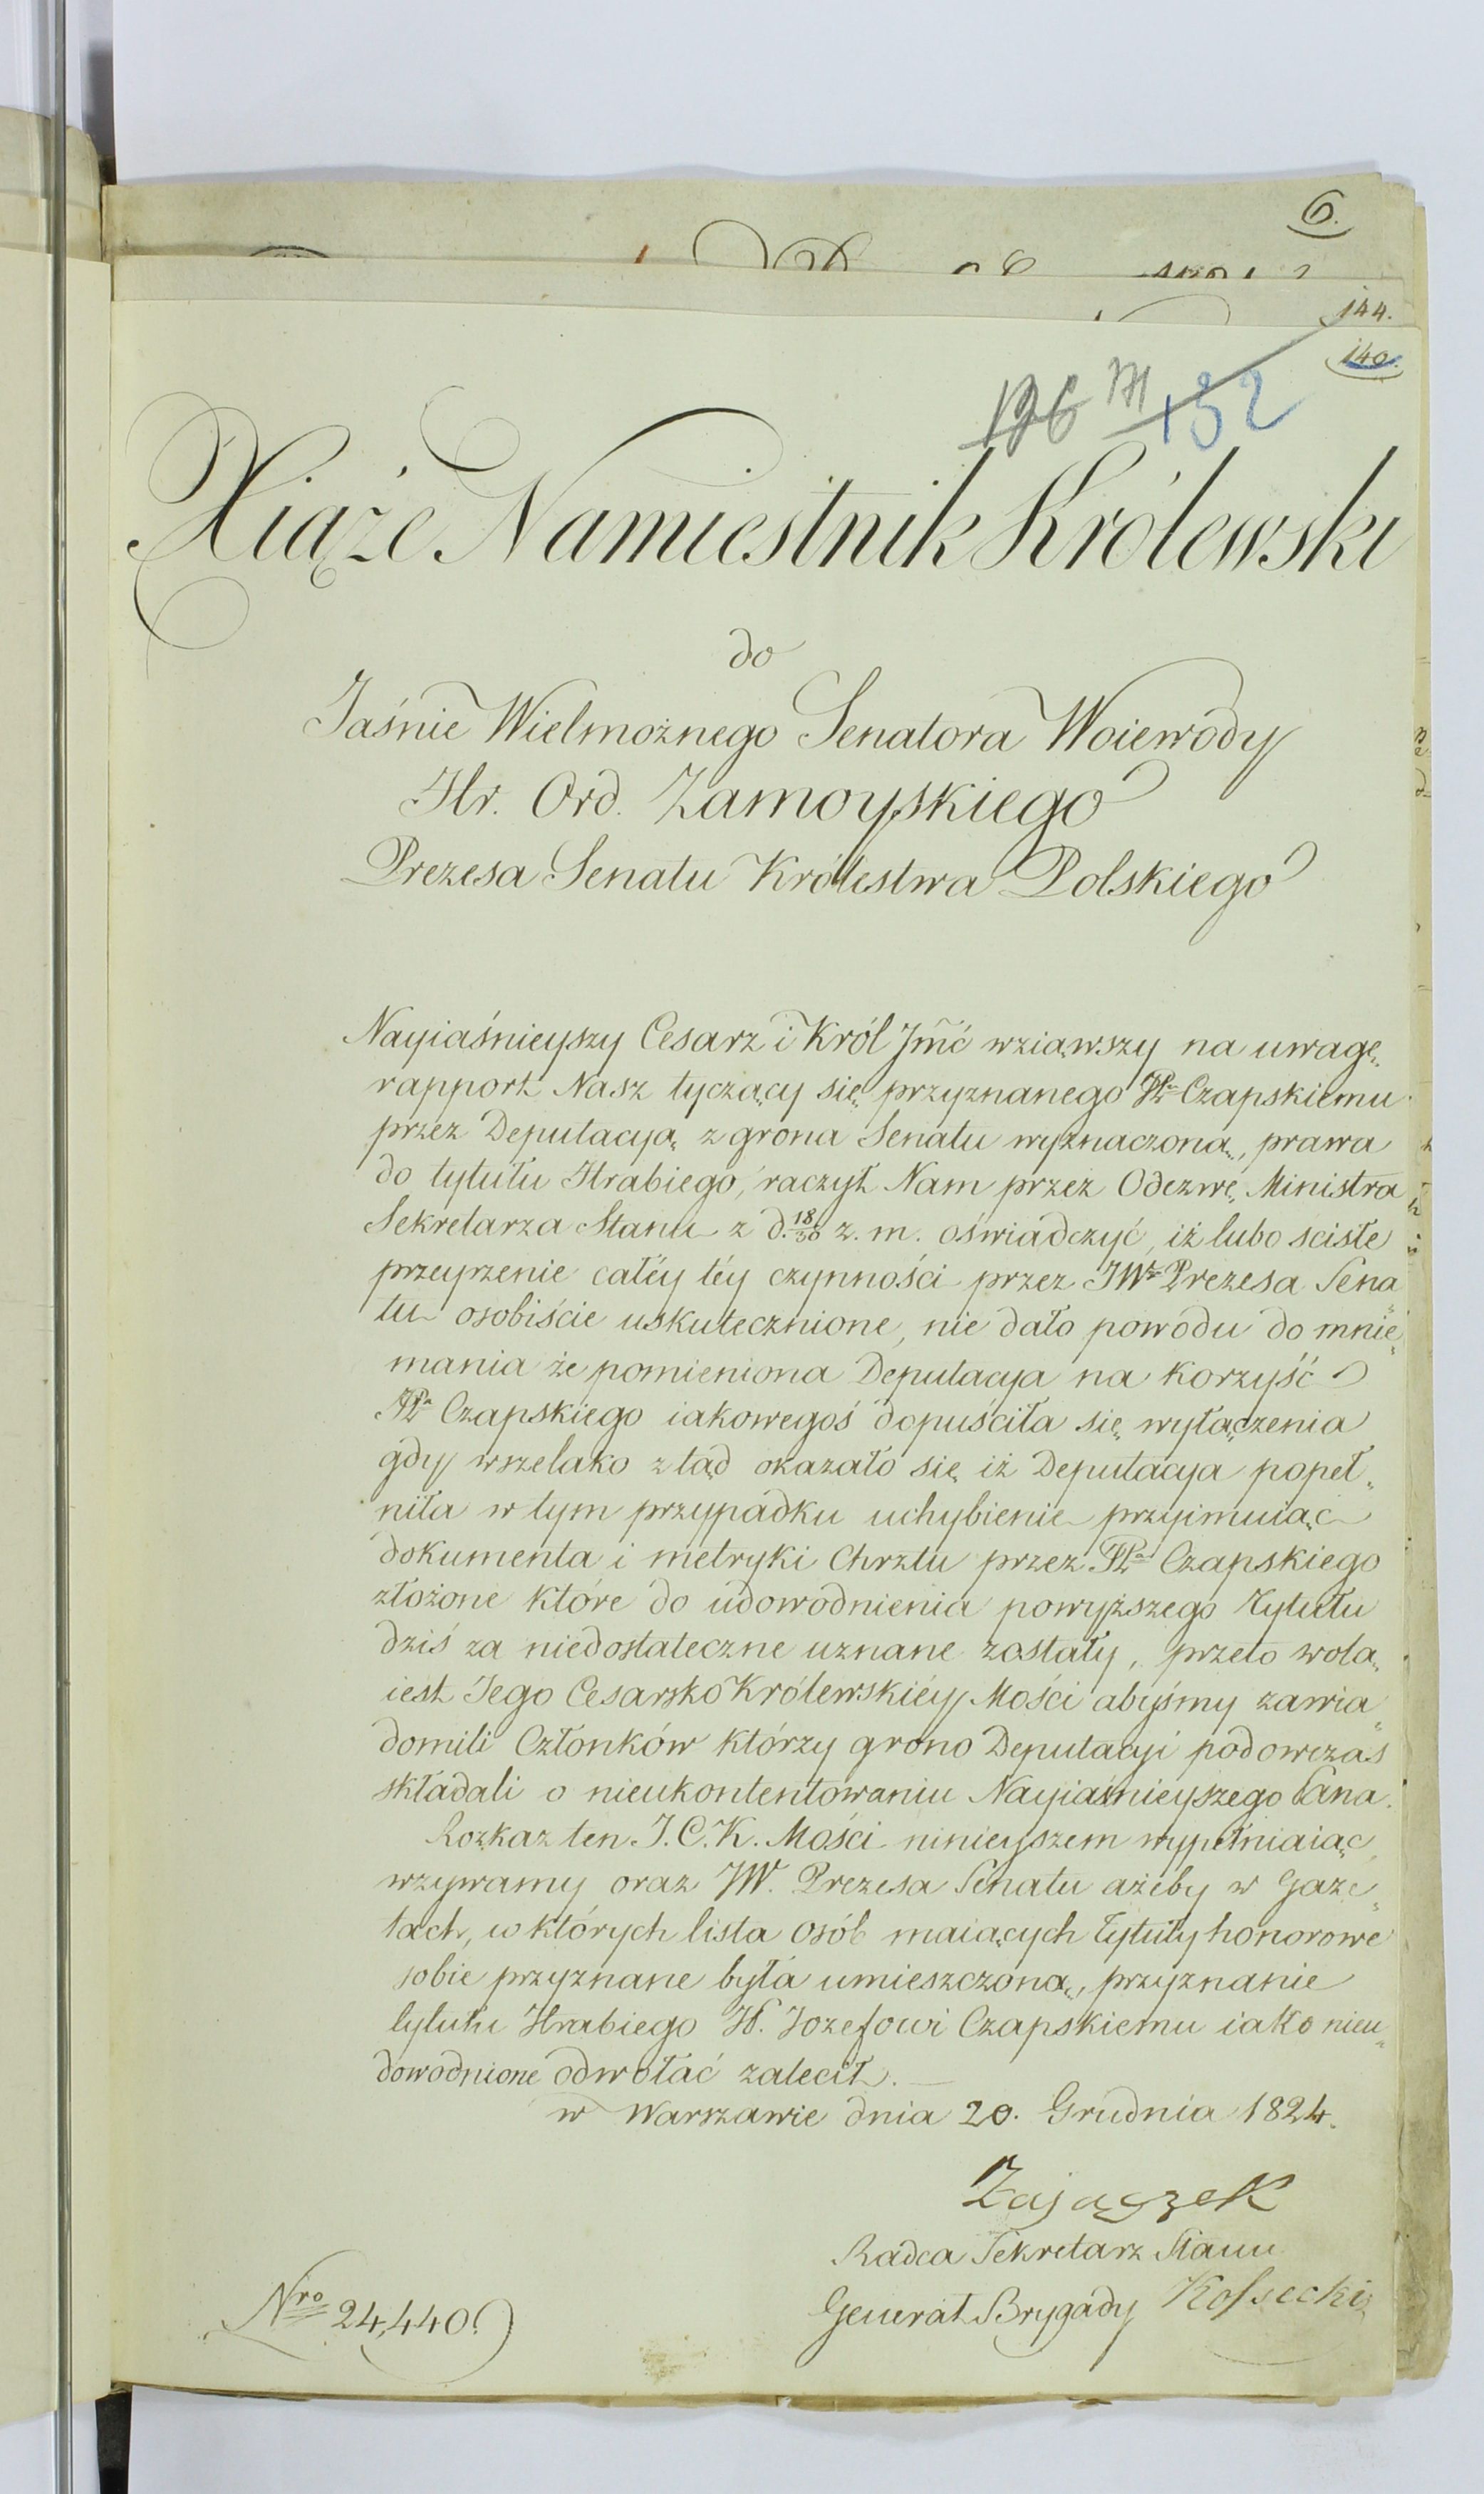 6.
144.
140.
126 131 132
Xiąże Namiestnik Królewski
do
Jaśnie Wielmożnego Senatora Woiewody
Hr. Ord. Zamoyskiego
Prezesa Senatu Królestwa Polskiego
Nayiaśnieyszy Cesarz i Król Jmć wziąwszy na uwagę
rapport Nasz tyczący się przyznanego Czapskiemu
przez Deputacyą z grona Senatu wyznaczoną, prawa
do tytułu Hrabiego, raczył Nam przez Odezwę Ministra
Sekretarza Stanu z d. 18/30 z. m. oświadczyć, iż lubo scisłe
przeyrzenie całéy téy czynności przez JWo Prezesa Sena„
tu osobiście uskutecznione, nie dało powodu do mnie„
mania że pomieniona Deputacya na korzyść
Czapskiego iakowegoś dopuściła się wyłączenia
gdy wszelako ztąd okazało się iż Deputacya popeł„
niła w tym przypadku uchybienie przyimuiąc
dokumenta i metryki Chrztu przez Czapskiego
złożone które do udowodnienia powyższego Tytułu
dziś za niedostateczne uznane zostały, przeto wolą
iest Jego Cesarsko Królewskiéy Mości abyśmy zawia„
domili Członków którzy grono Deputacyi podowczas
składali o nieukontentowaniu Nayiaśnieyszego Pana.
Rozkaz ten J. C. K. Mości ninieyszem wypełniaiąc
wzywamy oraz JW. Prezesa Senatu ażeby w Gaze„
tach, w których lista osób maiących tytuły honorowe
sobie przyznane była umieszczoną, przyznanie
tytułu Hrabiego W. Jozefowi Czapskiemu iako nieu„
dowodnione odwołać zalecił.
w Warszawie dnia 20. Grudnia 1824.
Zajączek
Radca Sekretarz Stanu
Generał Brygady Kossecki
Nro 24,440.